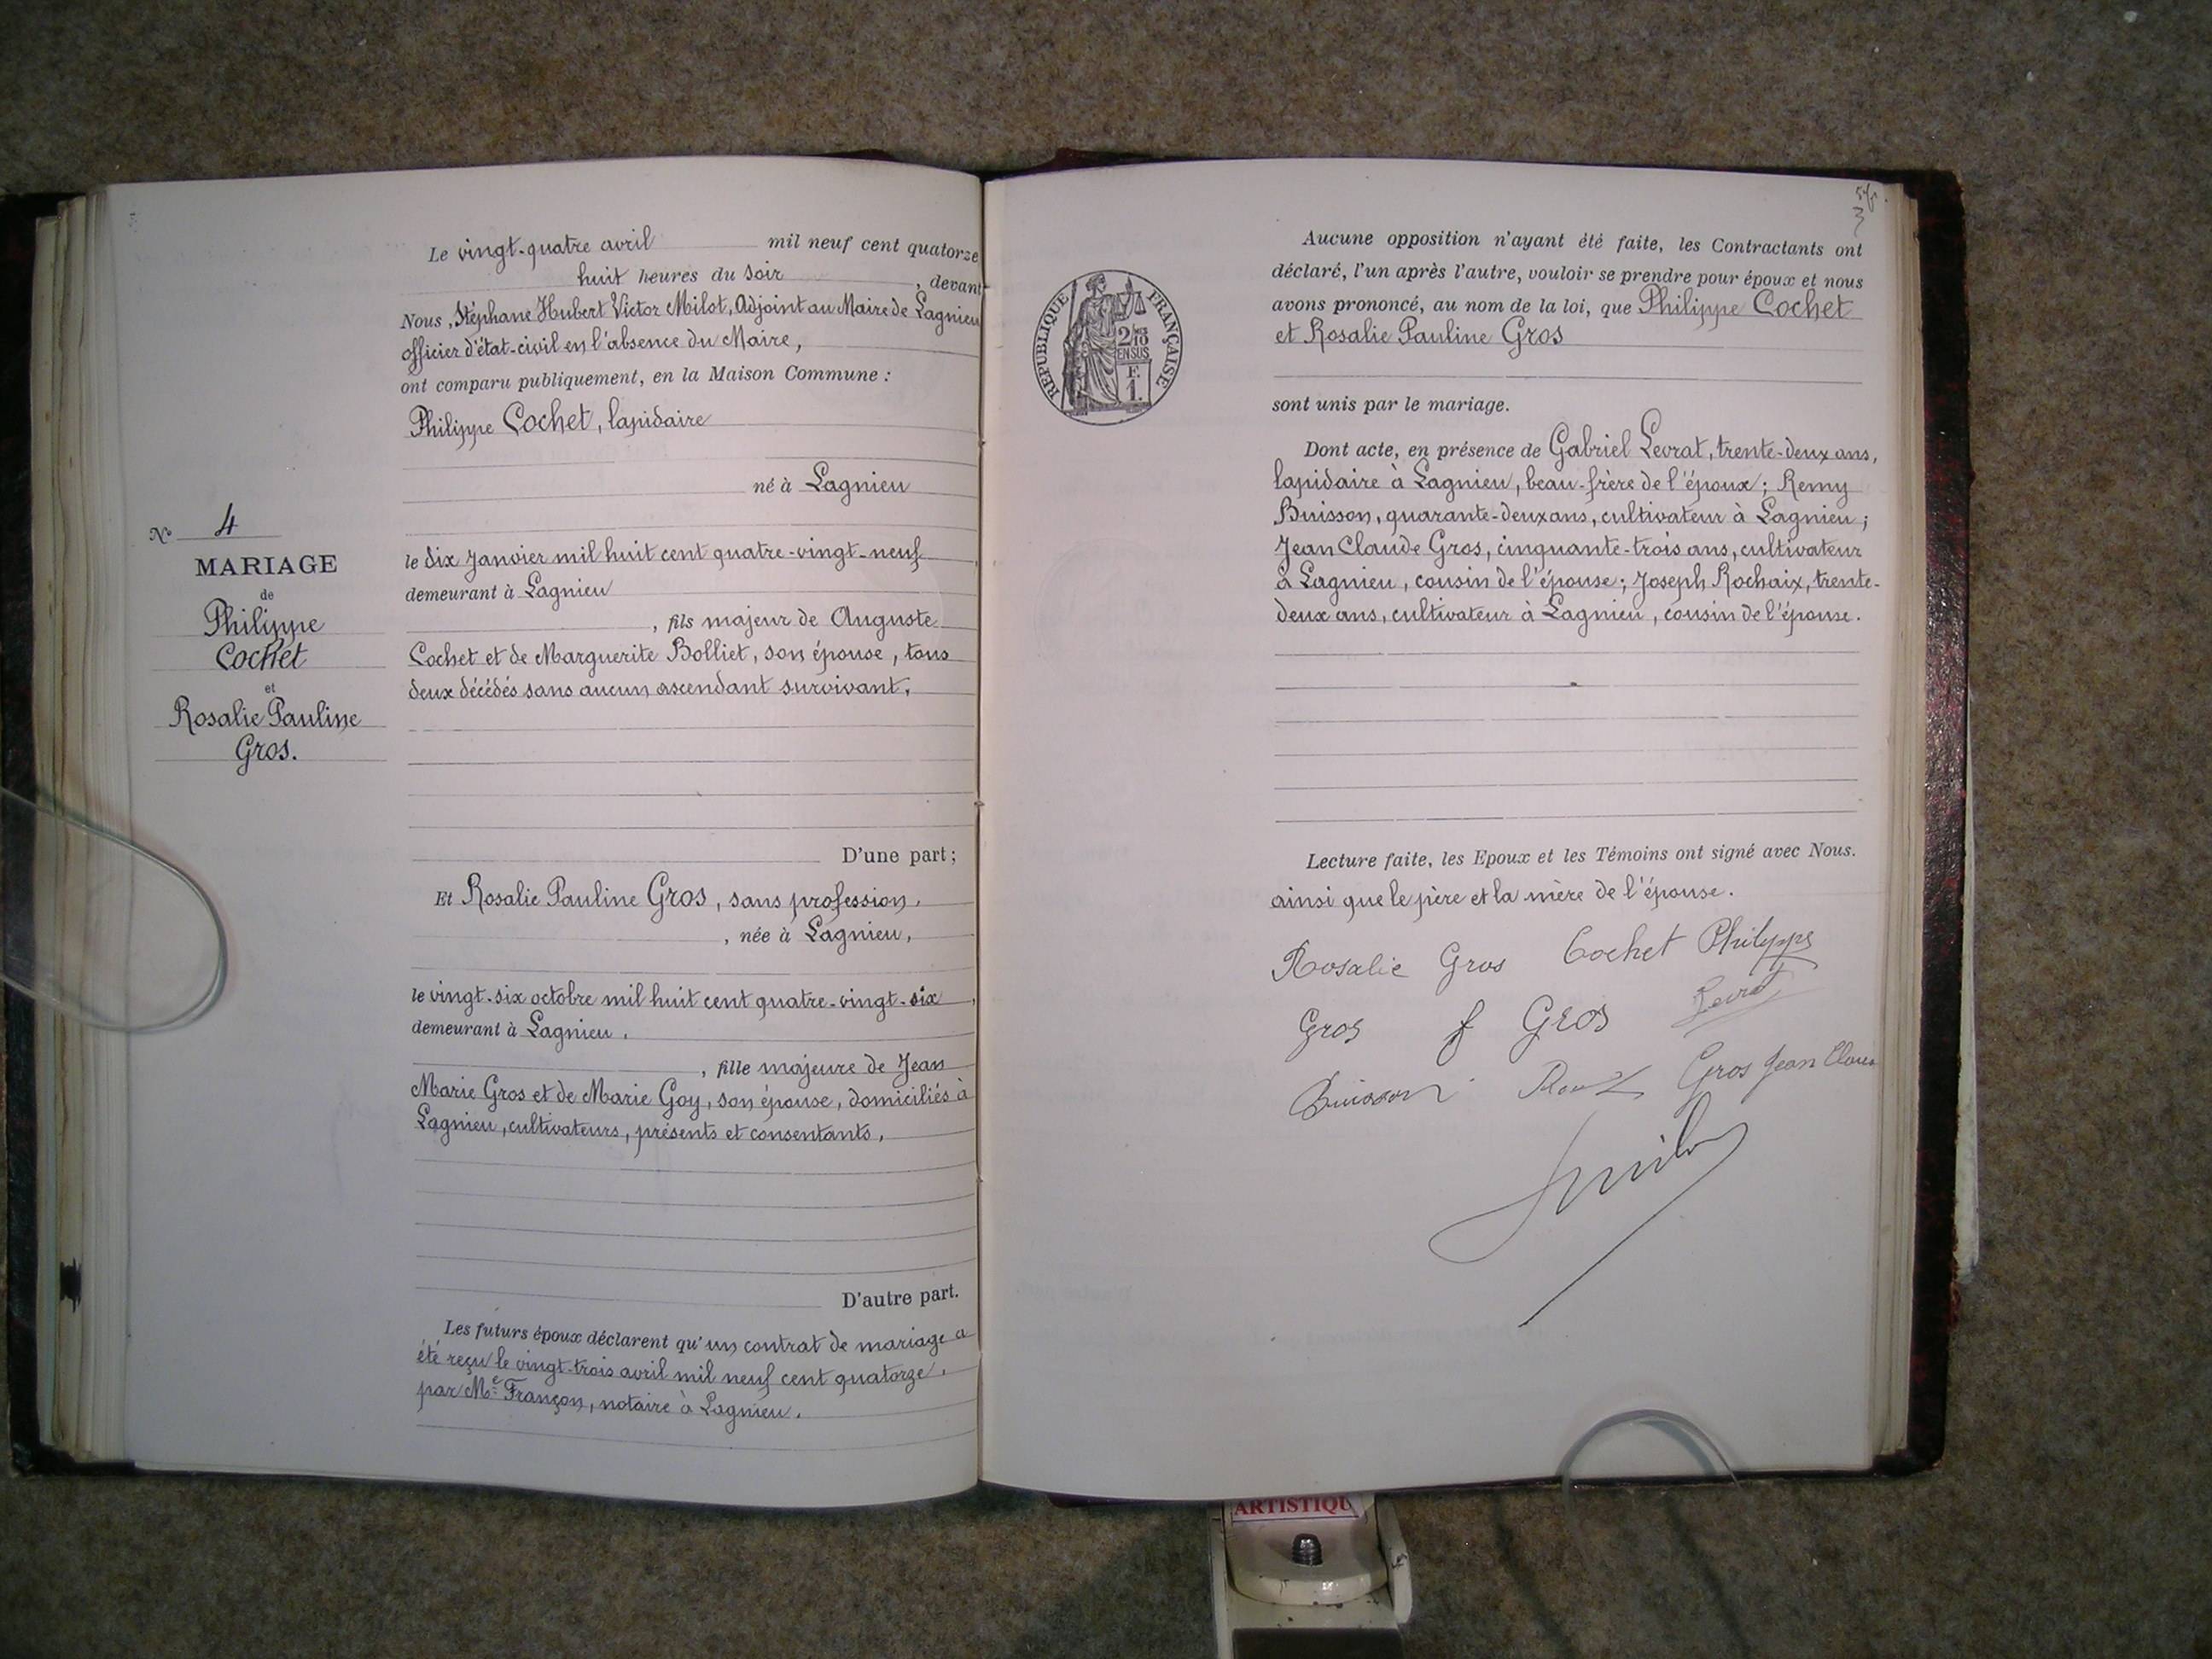 N° 4
MARIAGE
de
Philippe
Cochet
et
Rosalie Pauline
Gros.
Le vingt-quatre avril mil neuf cent quatorze
huit heures du soir, devant
Nous, Stéphane Hubert Victor Milot, Adjoint au Maire de Lagnieu
officier d'état-civil en l'absence du Maire,
ont comparu publiquement, en la Maison Commune :
Philippe Cochet, lapidaire
né à Lagnieu
le dix Janvier mil huit cent quatre-vingt-neuf
demeurant à Lagnieu
, fils majeur de Auguste
Cochet et de Marguerite Bolliet, son épouse, tous
deux décédés sans aucun ascendant survivant,
D'une part;
Et Rosalie Pauline Gros, sans profession,
, née à Lagnieu,
le vingt-six octobre mil huit cent quatre-vingt-six,
demeurant à Lagnieu,
, fille majeure de Jean
Marie Gros et de Marie Goy, son épouse, domiciliés à
Lagnieu, cultivateurs, présents et consentants,
D'autre part.
Les futurs époux déclarent qu'un contrat de mariage a
été reçu le vingt-trois avril mil neuf cent quatorze,
par Me Françon, notaire à Lagnieu.
3
RÉPUBLIQUE FRANÇAISE
2/10
EN SUS
F.
1.
Aucune opposition n'ayant été faite, les Contractants ont
déclaré, l'un après l'autre, vouloir se prendre pour époux et nous
avons prononcé, au nom de la loi, que Philippe Cochet
et Rosalie Pauline Gros
sont unis par le mariage.
Dont acte, en présence de Gabriel Levrat, trente-deux ans,
lapidaire à Lagnieu, beau-frère de l'époux; Remy
Buisson, quarante-deux ans, cultivateur à Lagnieu;
Jean Claude Gros, cinquante-trois ans, cultivateur
à Lagnieu, cousin de l'épouse; Joseph Rochaix, trente-
deux ans, cultivateur à Lagnieu, cousin de l'épouse.
Lecture faite, les Epoux et les Témoins ont signé avec Nous.
ainsi que le père et la mère de l'épouse.
Rosalie Gros Cochet Philippe
Gros f Gros Levrat
Buisson Gros Jean Claude
ARTISTIQU